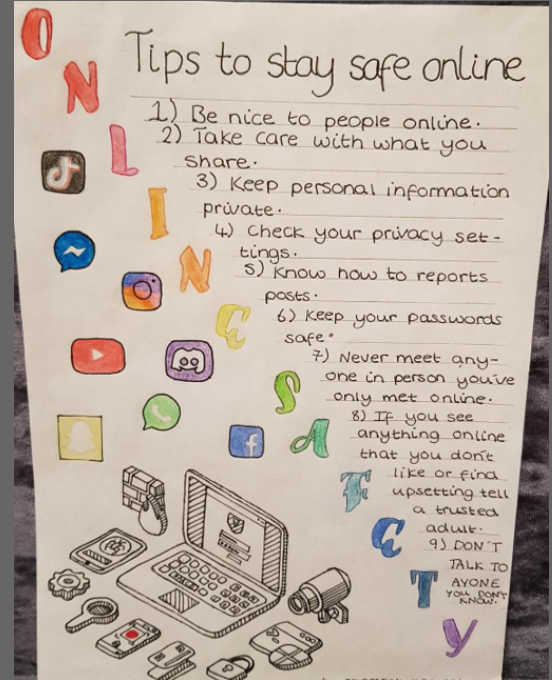 ONLINE SAFETY
Tips to stay safe online
1) Be nice to people online.
2) Take care with what you
share.
3) Keep personal information
private.
4) Check your privacy set-
tings.
5) Know how to reports
posts.
6) Keep your passwords
safe.
7) Never meet any-
one in person you've
only met online.
8) If you see
anything online
that you don't
like or find
upsetting tell
a trusted
adult.
9) DON'T
TALK TO
AYONE
YOU DON'T
KNOW.